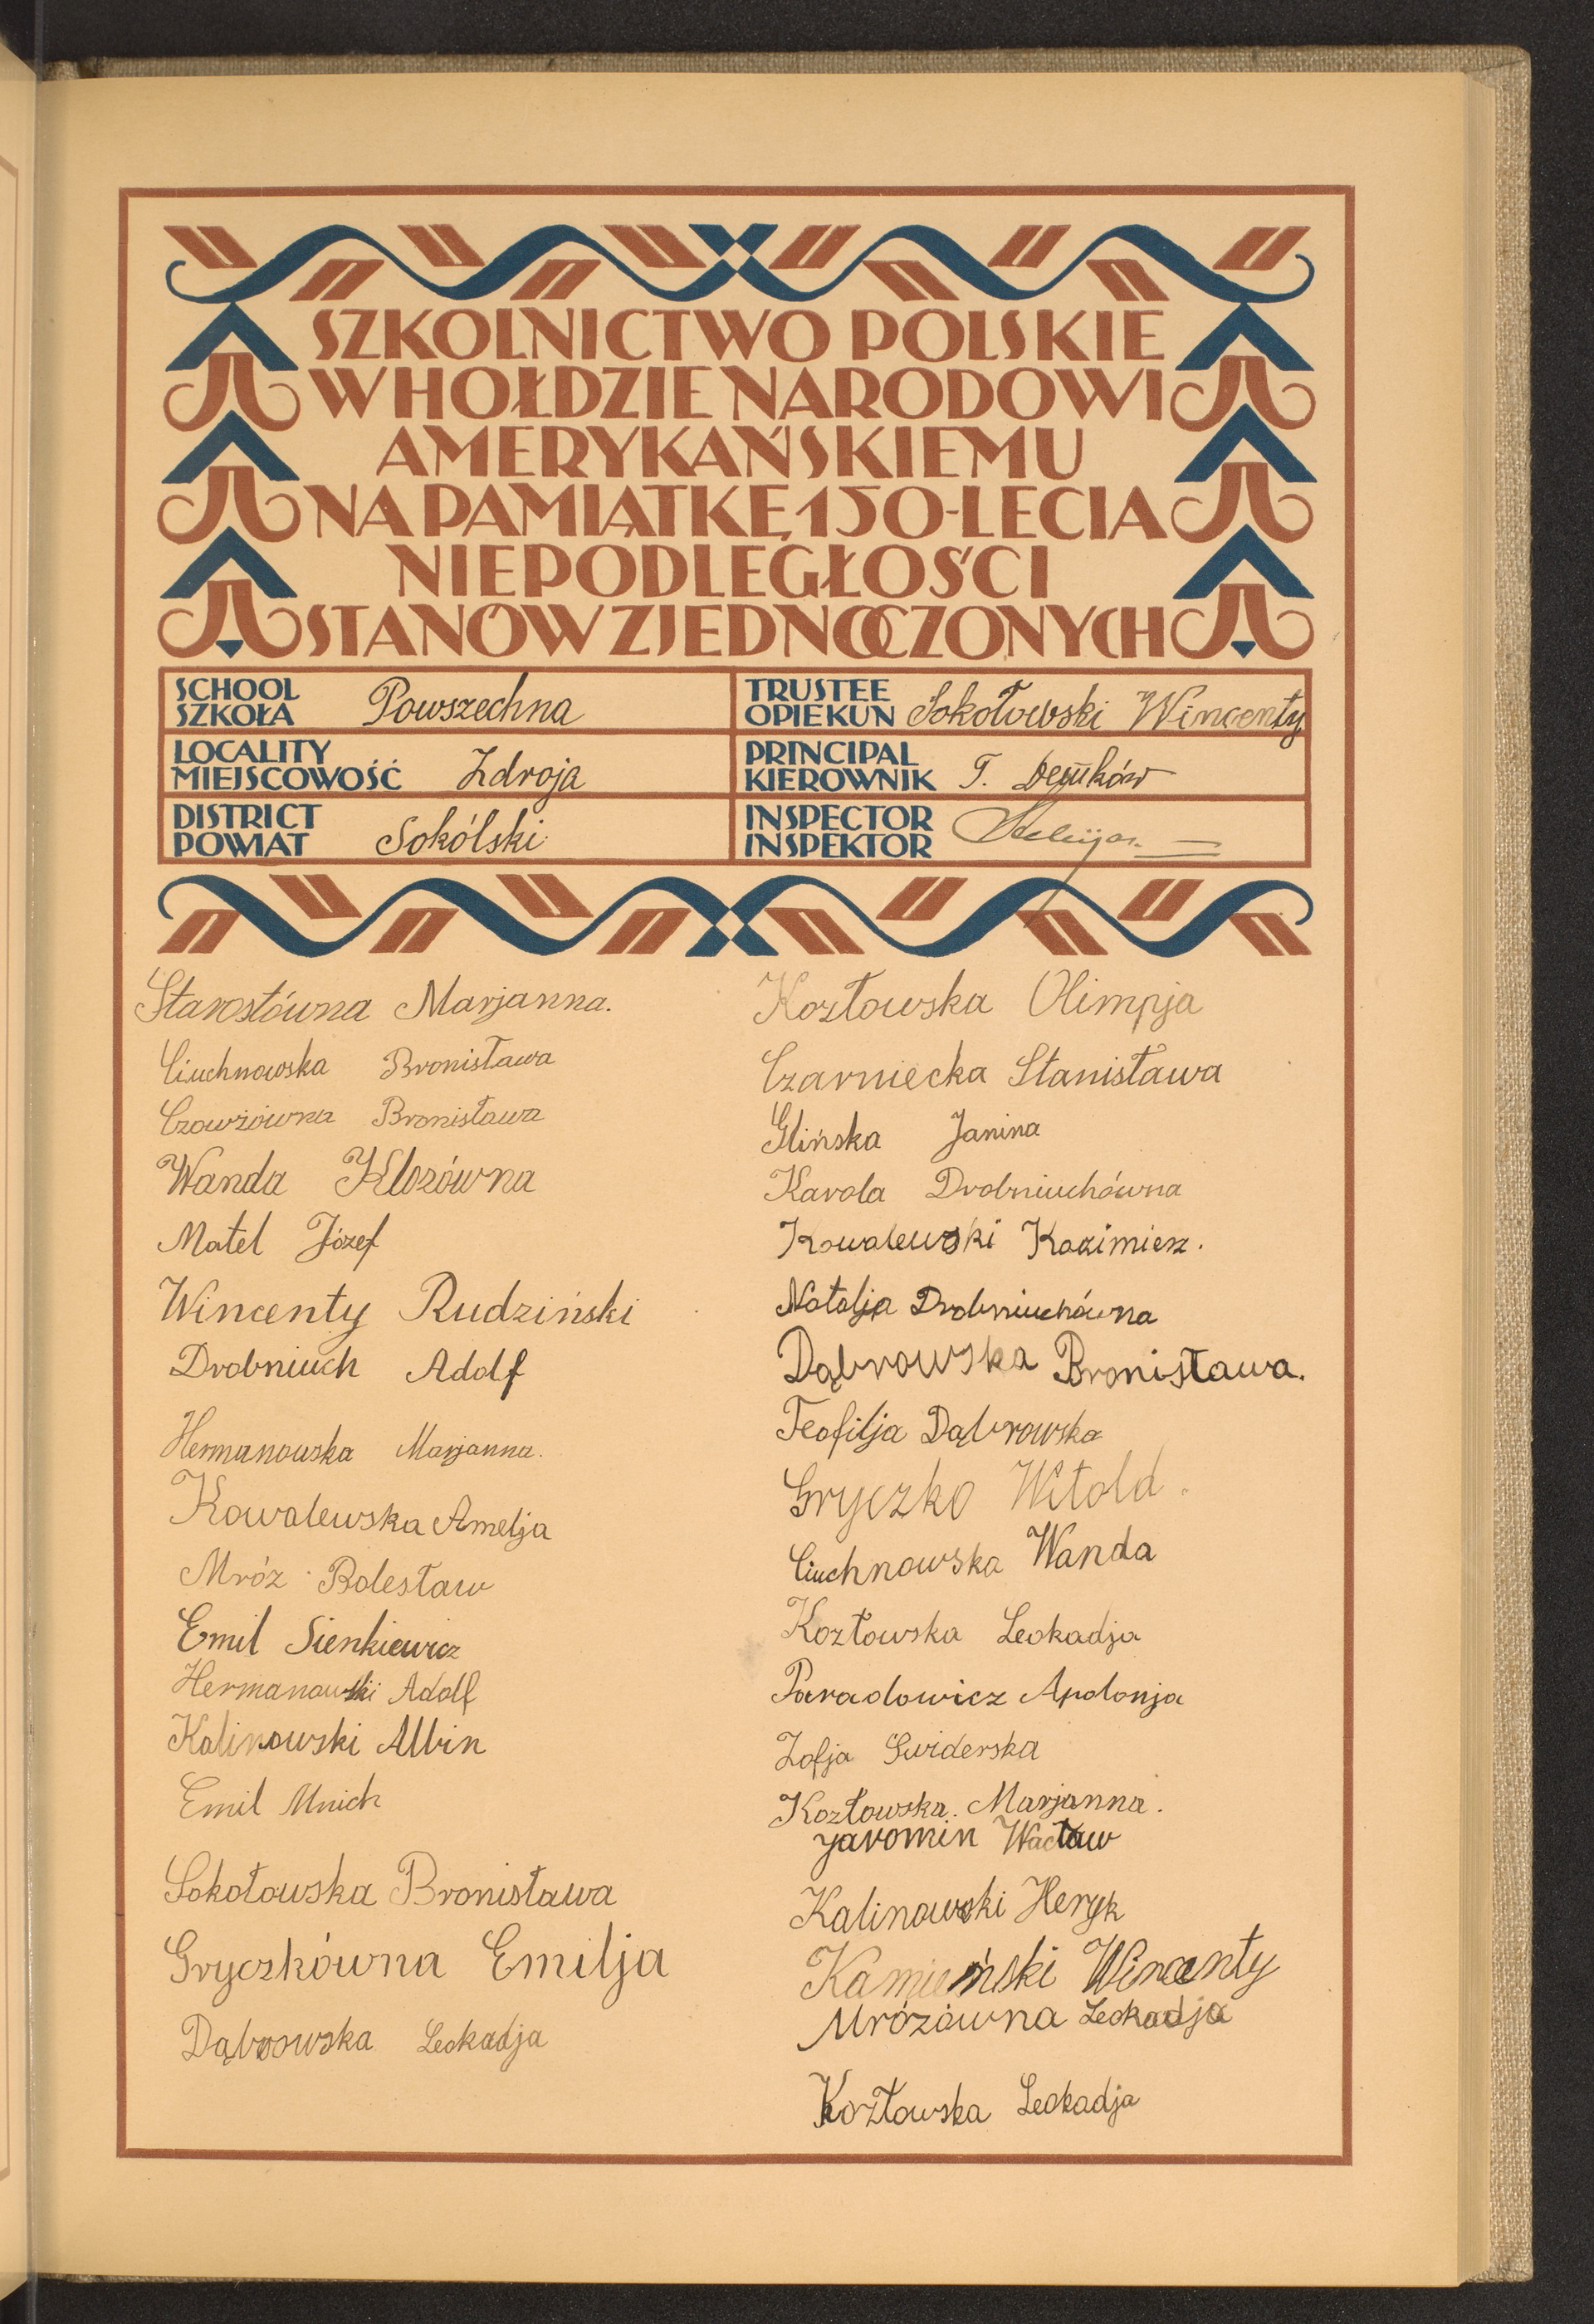 SZKOLNICTWO POLSKIE
W HOŁDZIE NARODOWI
AMERYKAŃSKIEMU
NA PAMIĄTKĘ 150-LECIA
NIEPODLEGŁOŚCI
STANÓW ZJEDNOCZONYCH
SCHOOL
SZKOŁA Powszechna
TRUSTEE
OPIEKUN Sokołowski Wincenty
LOCALITY
MIEJSCOWOŚĆ Zdroja
PRINCIPAL
KIEROWNIK T.
DISTRICT
POWIAT Sokólski
INSPECTOR
INSPEKTOR
Starostówna Marjanna.
Ciuchnowska Bronisława
Czowżówna Bronisława
Wanda Klozówna
Matel Józef
Wincenty Rudziński
Drobniuch Adolf
Hermanowska Marjanna.
Kowalewska Amelja
Mróz Bolesław
Emil Sienkiewicz
Hermanowski Adolf
Kalinowski Albin
Emil Mnich
Sokołowska Bronisława
Gryczkówna Emilja
Dąbrowska Leokadja
Kozłowska Olimpja
Czarniecka Stanisława
Glińska Janina
Karola Drobniuchówna
Kowalewski Kazimierz.
Natalja Drobniuchówna
Dąbrowska Bronisława.
Teofilja Dąbrowska
Gryczko Witold.
Ciuchnowska Wanda
Kozłowska Leokadja
Paradowicz Apolonja
Zofja Świderska
Kozłowska. Marjanna.
Jaromin Wacław
Kalinowski Heryk
Kamieński Wincenty
Mrózówna Leokadja
Kozłowska Leokadja